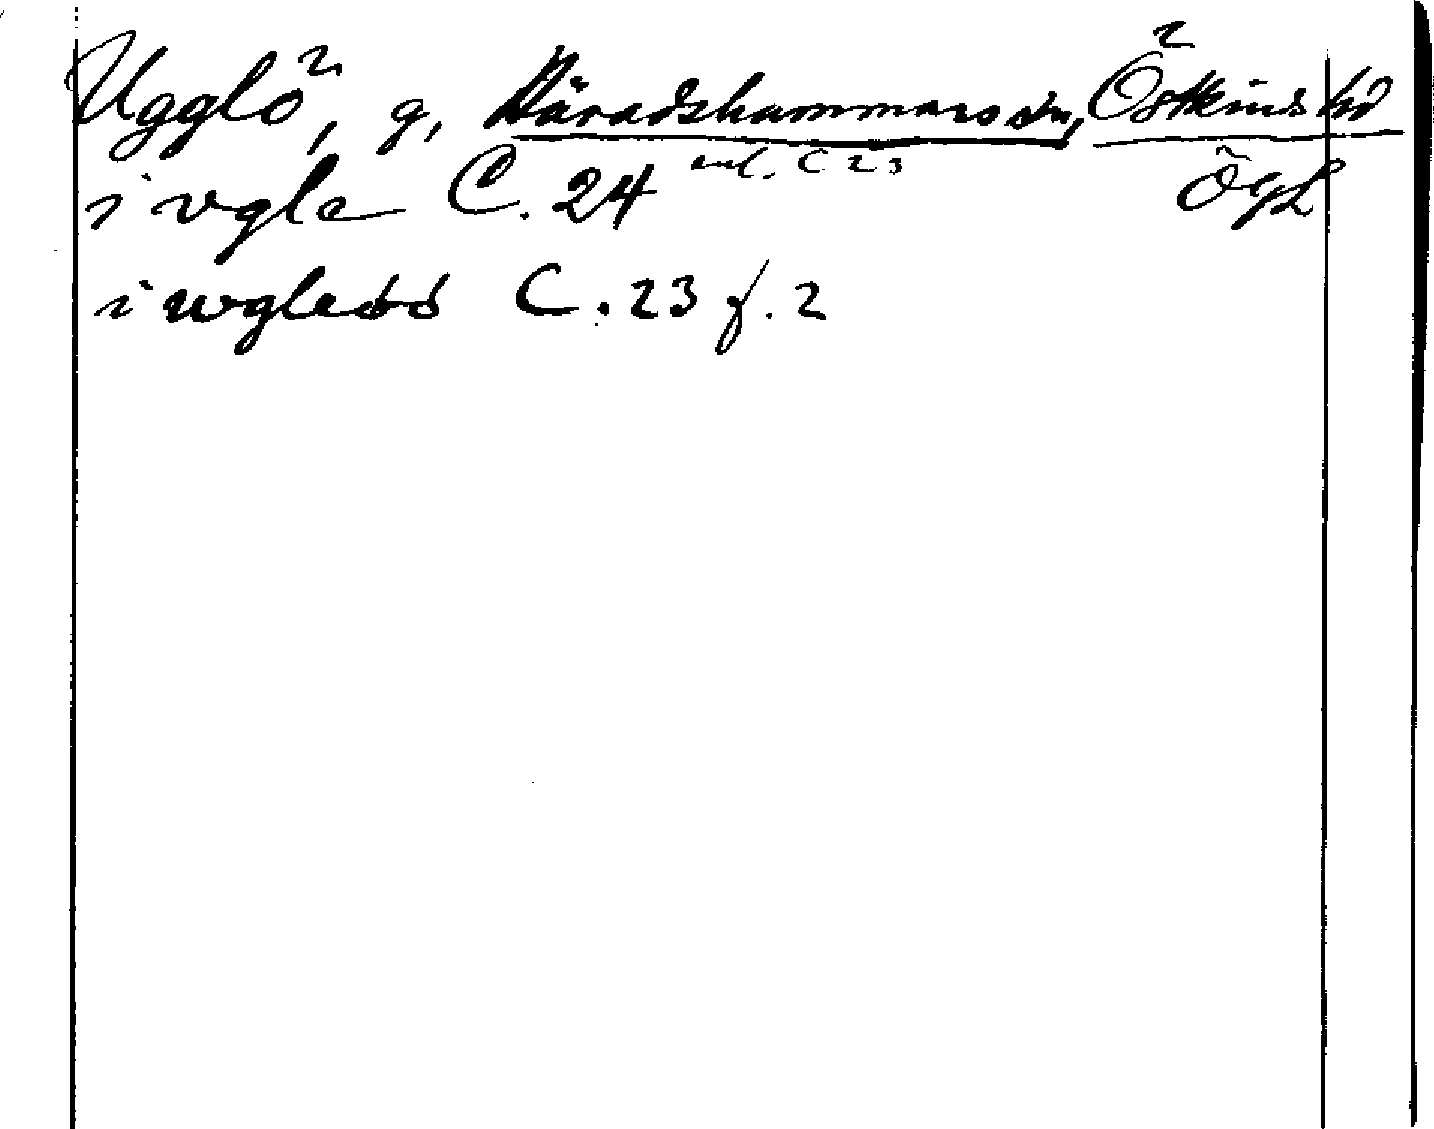 Ugglö, g, Häradshammars sn, Östkinds hd
i vgle C. 24 enl. C 23 Ögl
i wgleöö C. 23 f. 2